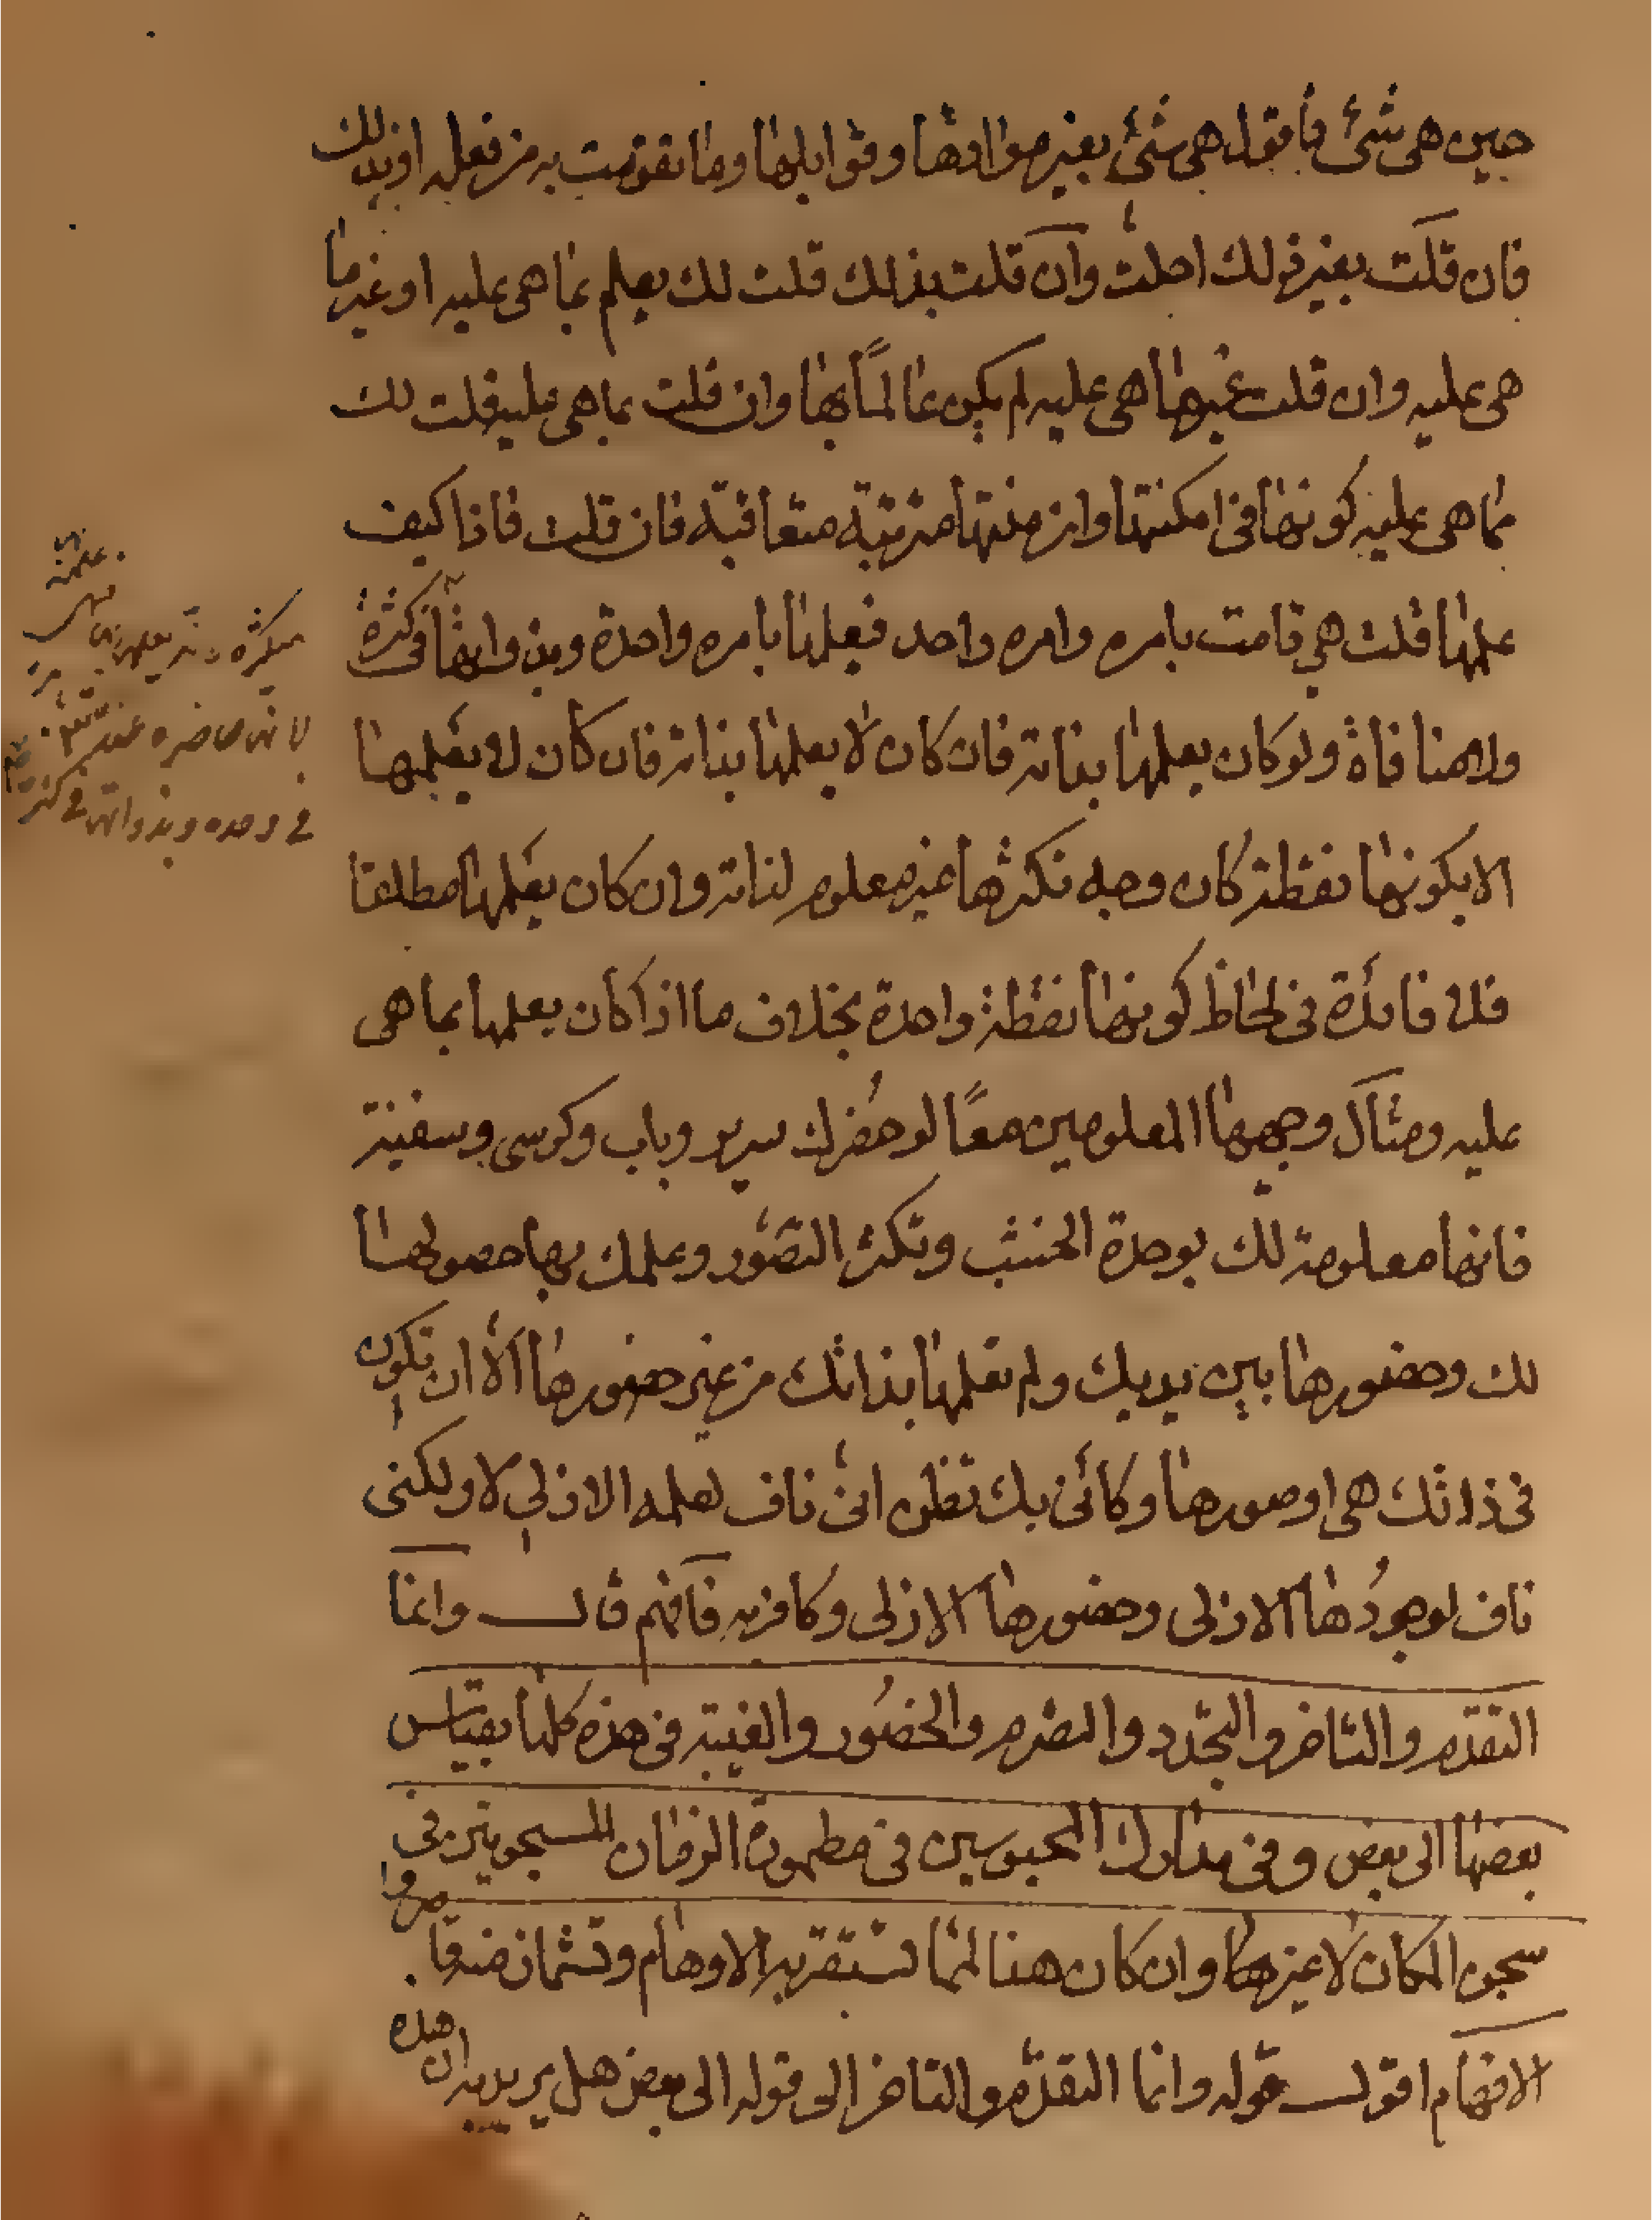 حين هى شئ فأقول هى شئ بغير موادها وقوابلها وما تقومت به من فعله او بذلك
فان قلت بغير ذلك احلت وان قلت بذلك قلت لك يعلم بما هى عليه او غير ما
هى عليه وان قلت بغير ما هى عليه لم يكن عالماً بها وان قلت بما هى عليه قلت لك
مما هى عليه كونها فى امكنتها وازمنتها مترتبة متعاقبة فان قلت فاذا كيف
علمها قلت هى قامت بامره وامره واحد فعلمها بامره واحدة وبذواتها فى كثرة
ولا منافاة ولو كان يعلمها بذاته فان كان لا يعلمها بذاته فان كان لا يعلمها
الا بكونها نقطة كان وجه تكثرها غير معلوم لذاته وان كان يعلمها مطلقا
فلا فائدة فى لحاظ كونها نقطة واحدة بخلاف ما اذا كان يعلمها بما هى
عليه ومثال وجهها المعلومين معًا لو حضرك سرير وباب وكرسى وسفينة
فانها معلومة لك بوحدة الخشب وتكثر التصور وعلمك بها حصولها
لك وحضورها بين يديك ولم تعلمها بذاتك من غير حضورها الا ان تكون
فى ذاتك هى او صورها وكأنى بك تظن انى ناف لعلمه الازلى لا ولكنى
ناف لوجودها الازلى وحضورها الازلى وكافر به فافهم قال وانما
التقدم والتاخر والتجدد والتصرم والحضور والغيبة فى هذه كلها بقياس
بعضها الى بعض وفى مدارك المحبوسين فى مطمورة الزمان المسجونين فى
سجن المكان لا غيرها وان كان هذا لمما تستقربه الاوهام وتشمأز منه قا
صروا
الافهام اقول قوله وانما التقدم والتاخر الى قوله الى بعض هل يريد به ان هذه
لانها حاضره عنده
فى وحده وبذواتها فى كثرة